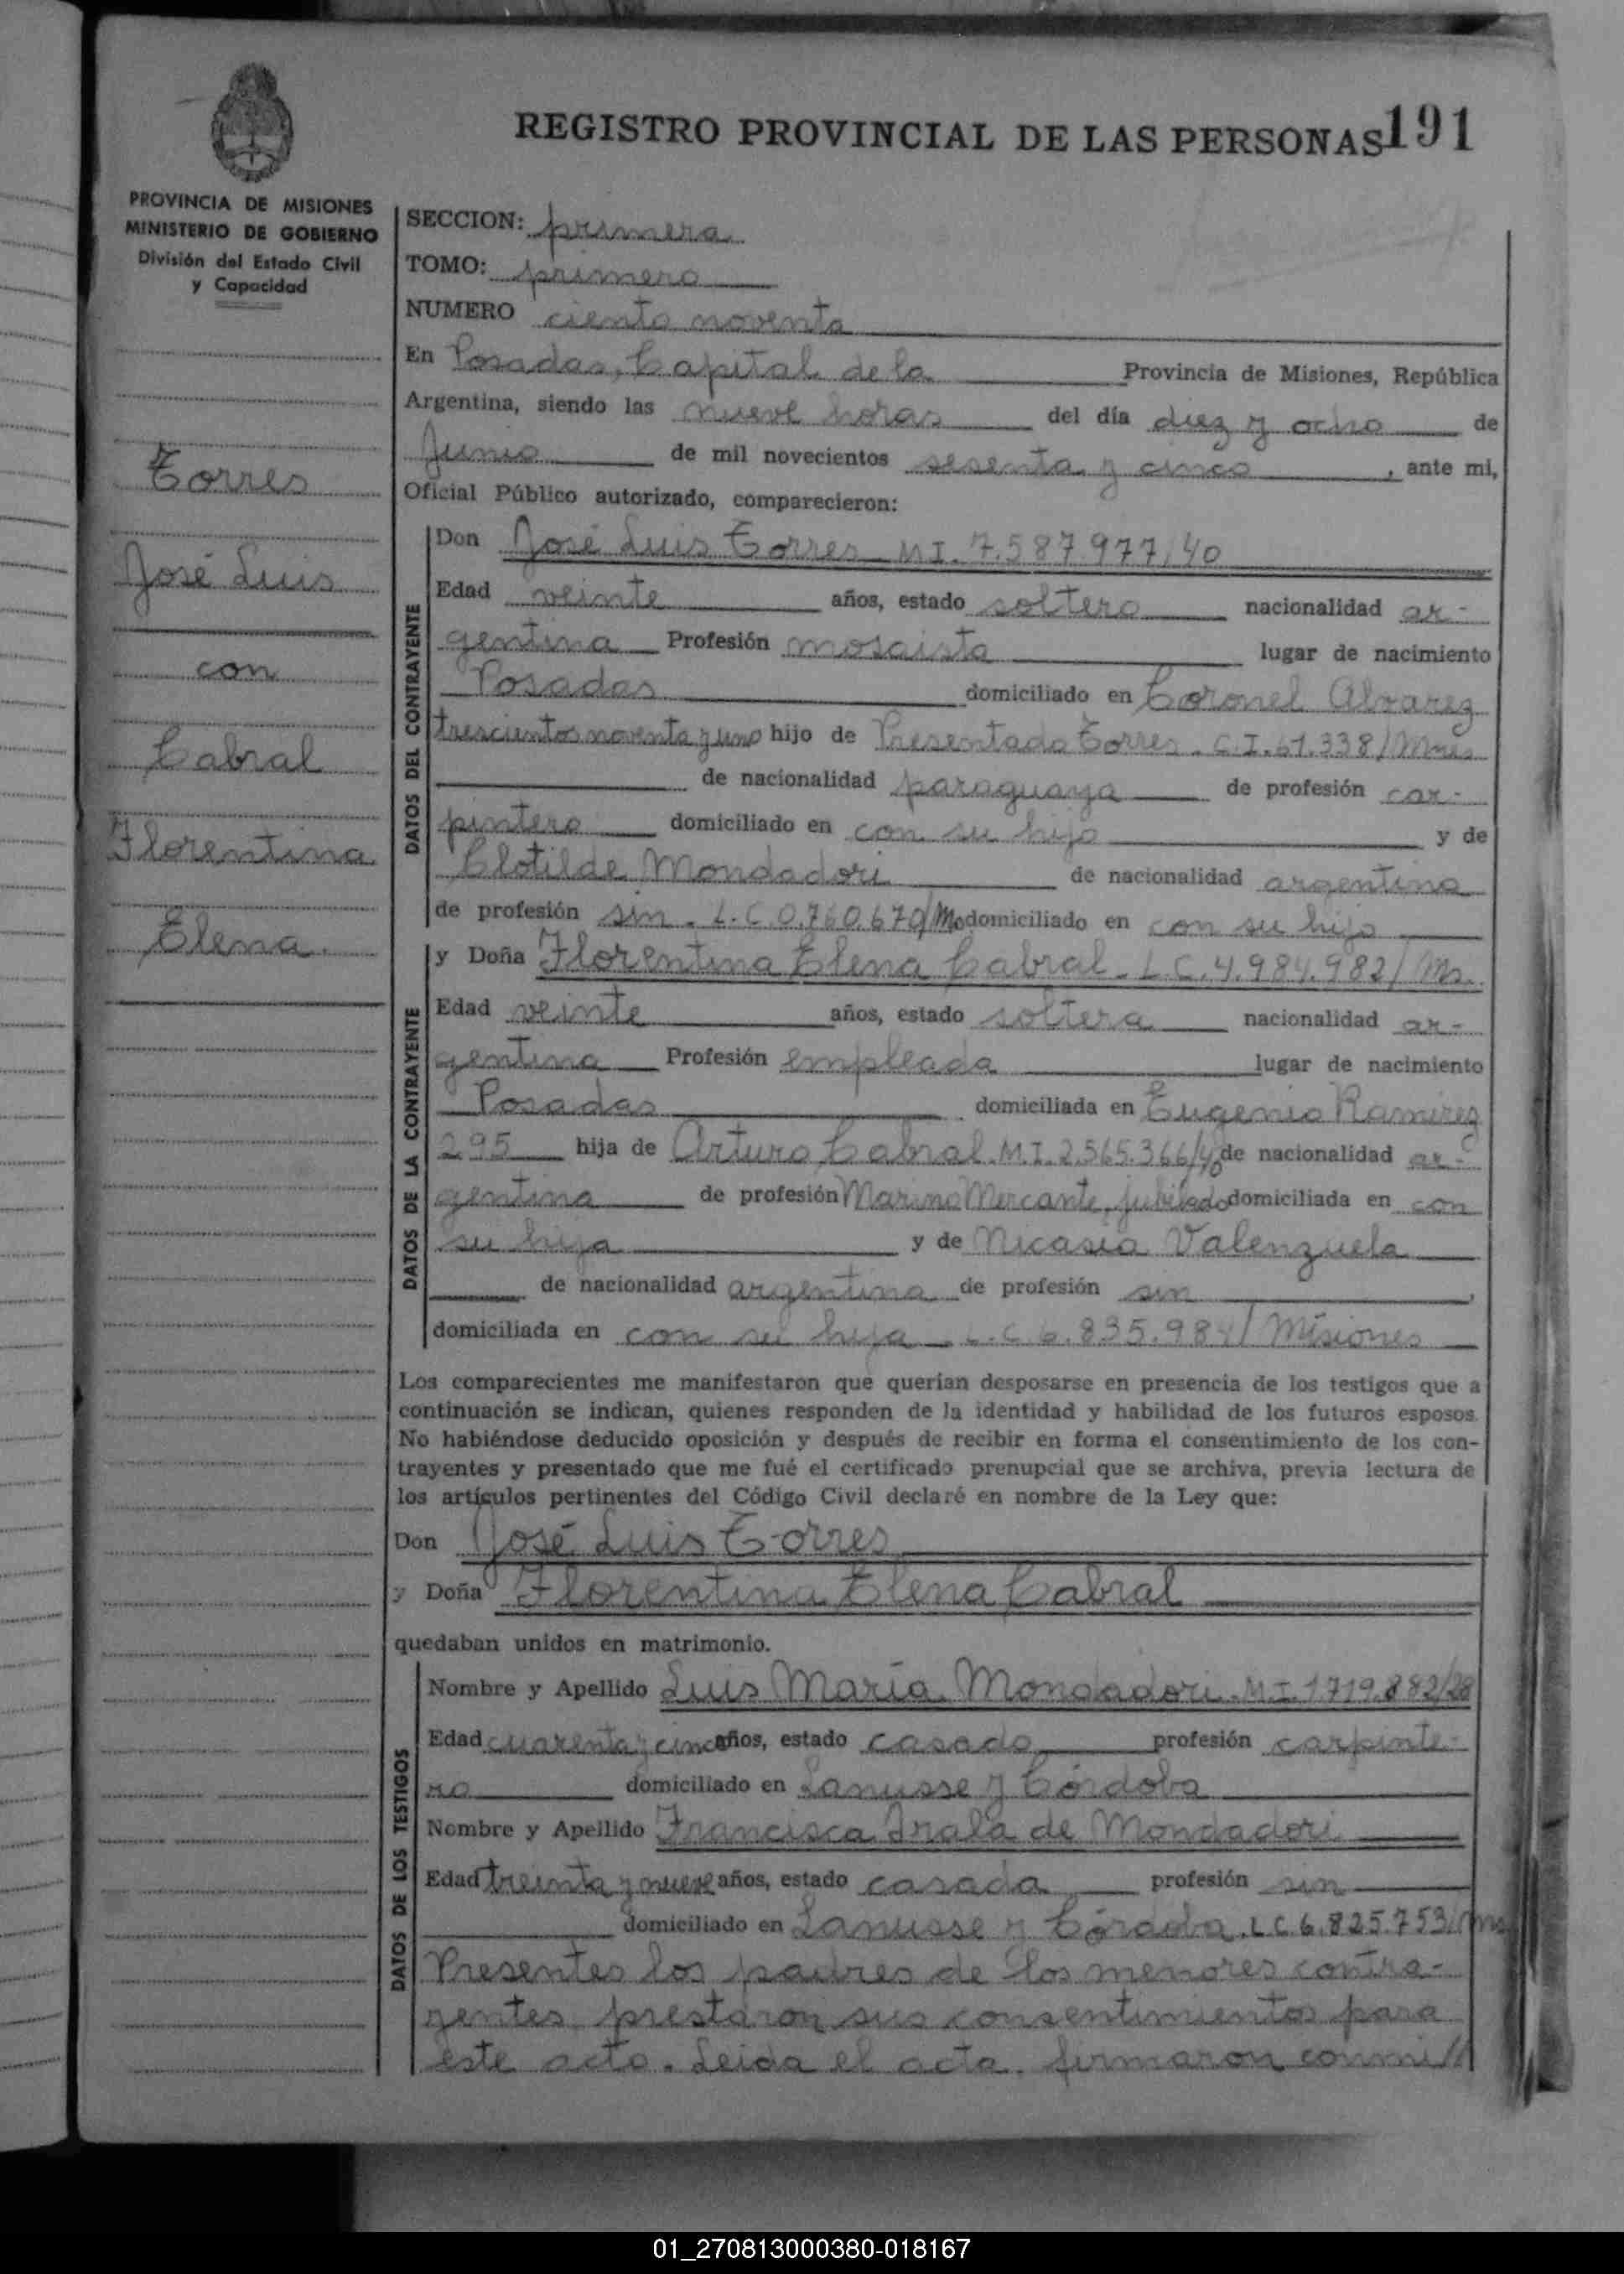 REGISTRO PROVINCIAL DE LAS PERSONAS 191
PROVINCIA DE MISIONES
MINISTERIO DE GOBIERNO
División del Estado Civil
y Capacidad
Torres
José Luis
con
Cabral
Florentina
Elena.
SECCION: primera
TOMO: primero
NUMERO ciento noventa
En Posadas, Capital de la Provincia de Misiones, República
Argentina, siendo las nueve horas del día diez y ocho de
Junio de mil novecientos sesenta y cinco, ante mi,
Oficial Público autorizado, comparecieron:
DATOS DEL CONTRAYENTE
Don José Luis Torres M.I. 7.587.977/40
Edad veinte años, estado soltero nacionalidad ar-
gentina Profesión mosaista lugar de nacimiento
Posadas domiciliado en Coronel Alvarez
trescientos noventa y uno hijo de Presentado Torres. C.I. 61.338/Mnes
de nacionalidad paraguaya de profesión car-
pintero domiciliado en con su hijo y de
Clotilde Mondadori de nacionalidad argentina
de profesión sin. L.C. 0.760.670/M domiciliado en con su hijo
DATOS DE LA CONTRAYENTE
y Doña Florentina Elena Cabral. L C. 4.984.982/Ms.
Edad veinte años, estado soltera nacionalidad ar-
gentina Profesión empleada lugar de nacimiento
Posadas domiciliada en Eugenio Ramirez
295 hija de Arturo Cabral. M.I. 2.565.366/40 de nacionalidad ar-
gentina de profesión Marino Mercante, jubilado domiciliada en con
su hija y de Nicasia Valenzuela
de nacionalidad argentina de profesión sin,
domiciliada en con su hija L.C 6.835.984/Misiones
Los comparecientes me manifestaron que querían desposarse en presencia de los testigos que a
continuación se indican, quienes responden de la identidad y habilidad de los futuros esposos.
No habiéndose deducido oposición y después de recibir en forma el consentimiento de los con-
trayentes y presentado que me fué el certificado prenupcial que se archiva, previa lectura de
los artículos pertinentes del Código Civil declaré en nombre de la Ley que:
Don José Luis Torres
y Doña Florentina Elena Cabral
quedaban unidos en matrimonio.
DATOS DE LOS TESTIGOS
Nombre y Apellido Luis María Mondadori. M.I. 1719.882/28
Edad cuarenta y cinco años, estado casado profesión carpinte-
ro domiciliado en Lanusse y Córdoba
Nombre y Apellido Francisca Irala de Mondadori
Edad treinta y nueve años, estado casada profesión sin
domiciliado en Lanusse y Córdoba. L C 6.825.753/Mns
Presentes los padres de los menores contra-
yentes prestaron sus consentimientos para
este acto. Leida el acta. firmaron conmi//
01_270813000380-018167